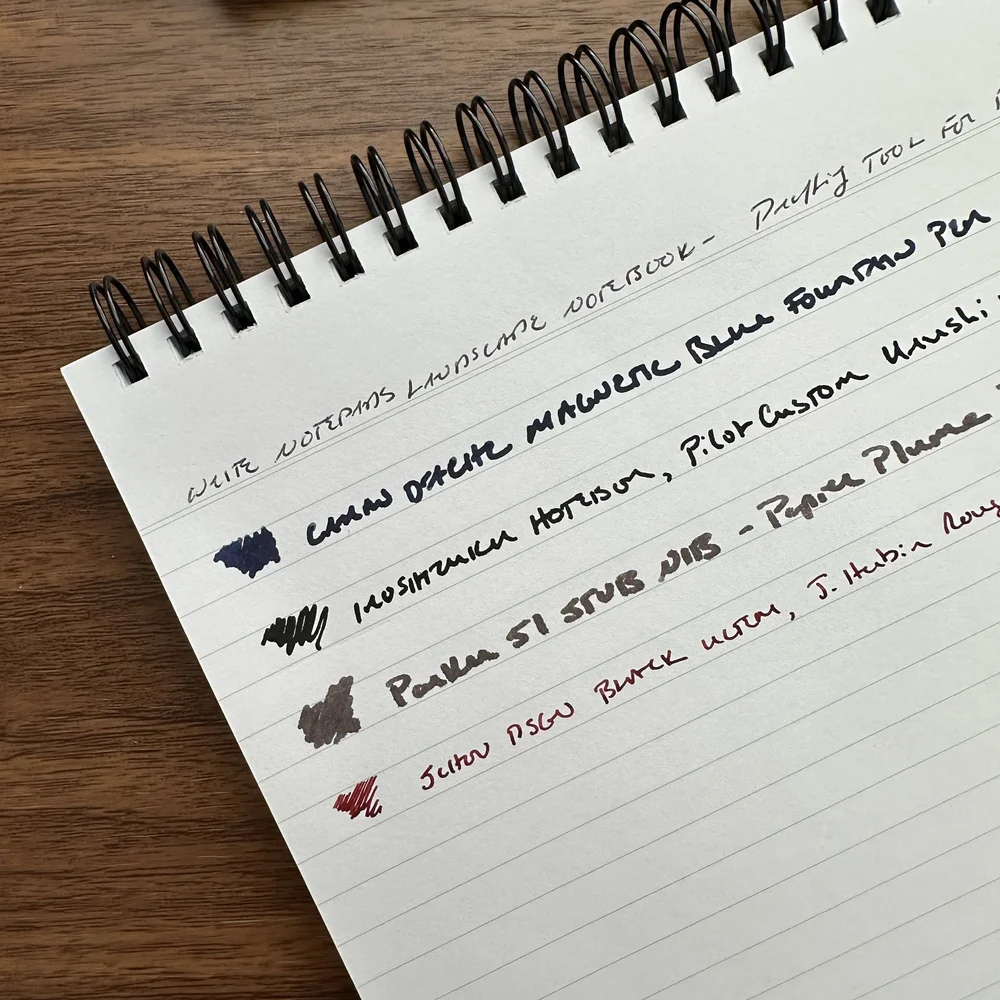 WRITE NOTEPADS LANDSCAPE NOTEBOOK - Drafting TOOL FOR
CARAN D'ACHE MAGNETIC BLUE FOUNTAIN PEN
HOTEISON, Pilot Custom Urushi
Parker 51 STUB NIB - Papier Plume
SCHON DSGN BLACK ULTEM, J. Herbin Roug